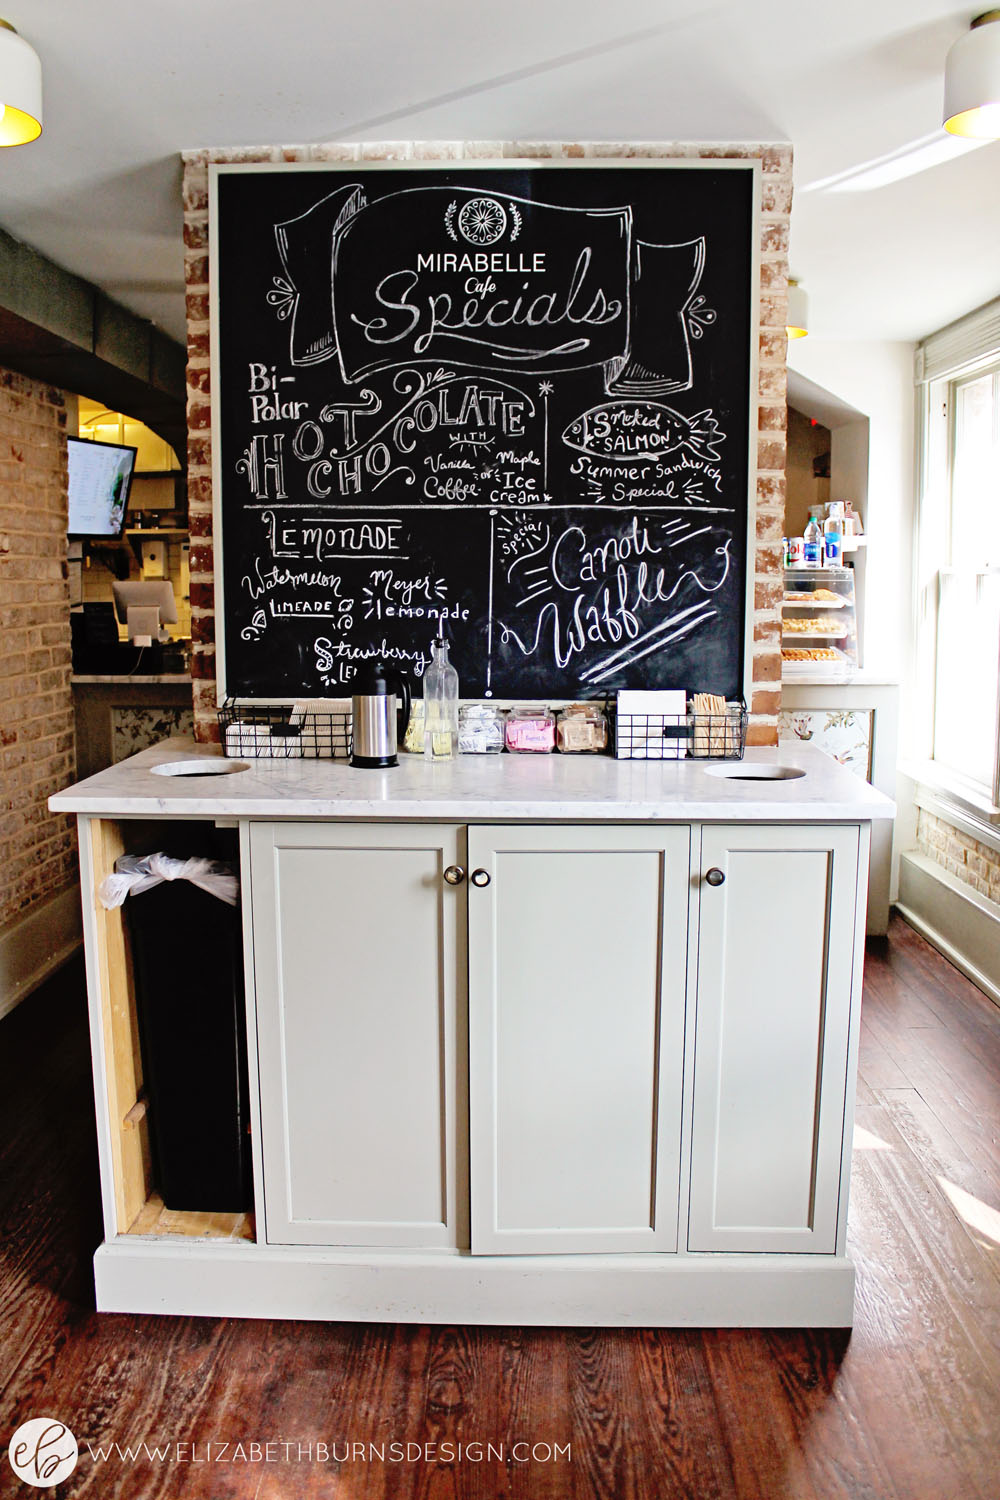 MIRABELLE
Cafe
Specials
Bi-
Polar
HOT
CHOCOLATE
WITH
Vanilla
Coffee
or
Maple
Ice
Cream
Smoked
SALMON
Summer Sandwich
Special
LEMONADE
Watermelon
LIMEADE
Meyer
lemonade
Strawberry
Special
Canoli
Waffle
WWW.ELIZABETHBURNSDESIGN.COM